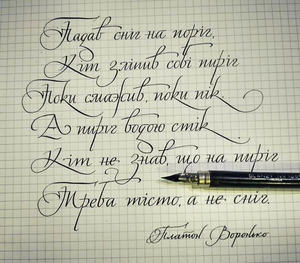 Падав сніг на поріг,
Кіт зліпив собі пиріг
Поки смажив, поки пік,
А пиріг водою стік.
Кіт не знав, що на пиріг
Треба тісто, а не сніг.
Платон Воронько